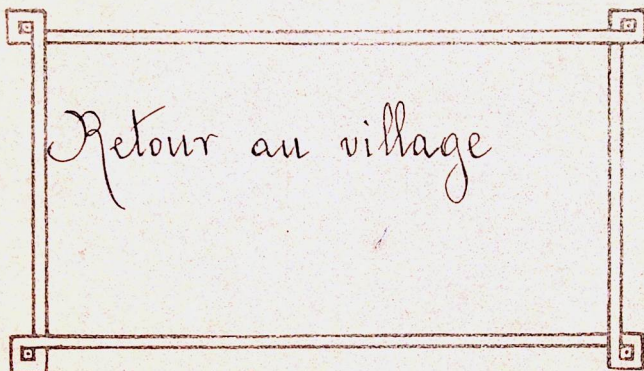 Retour au village